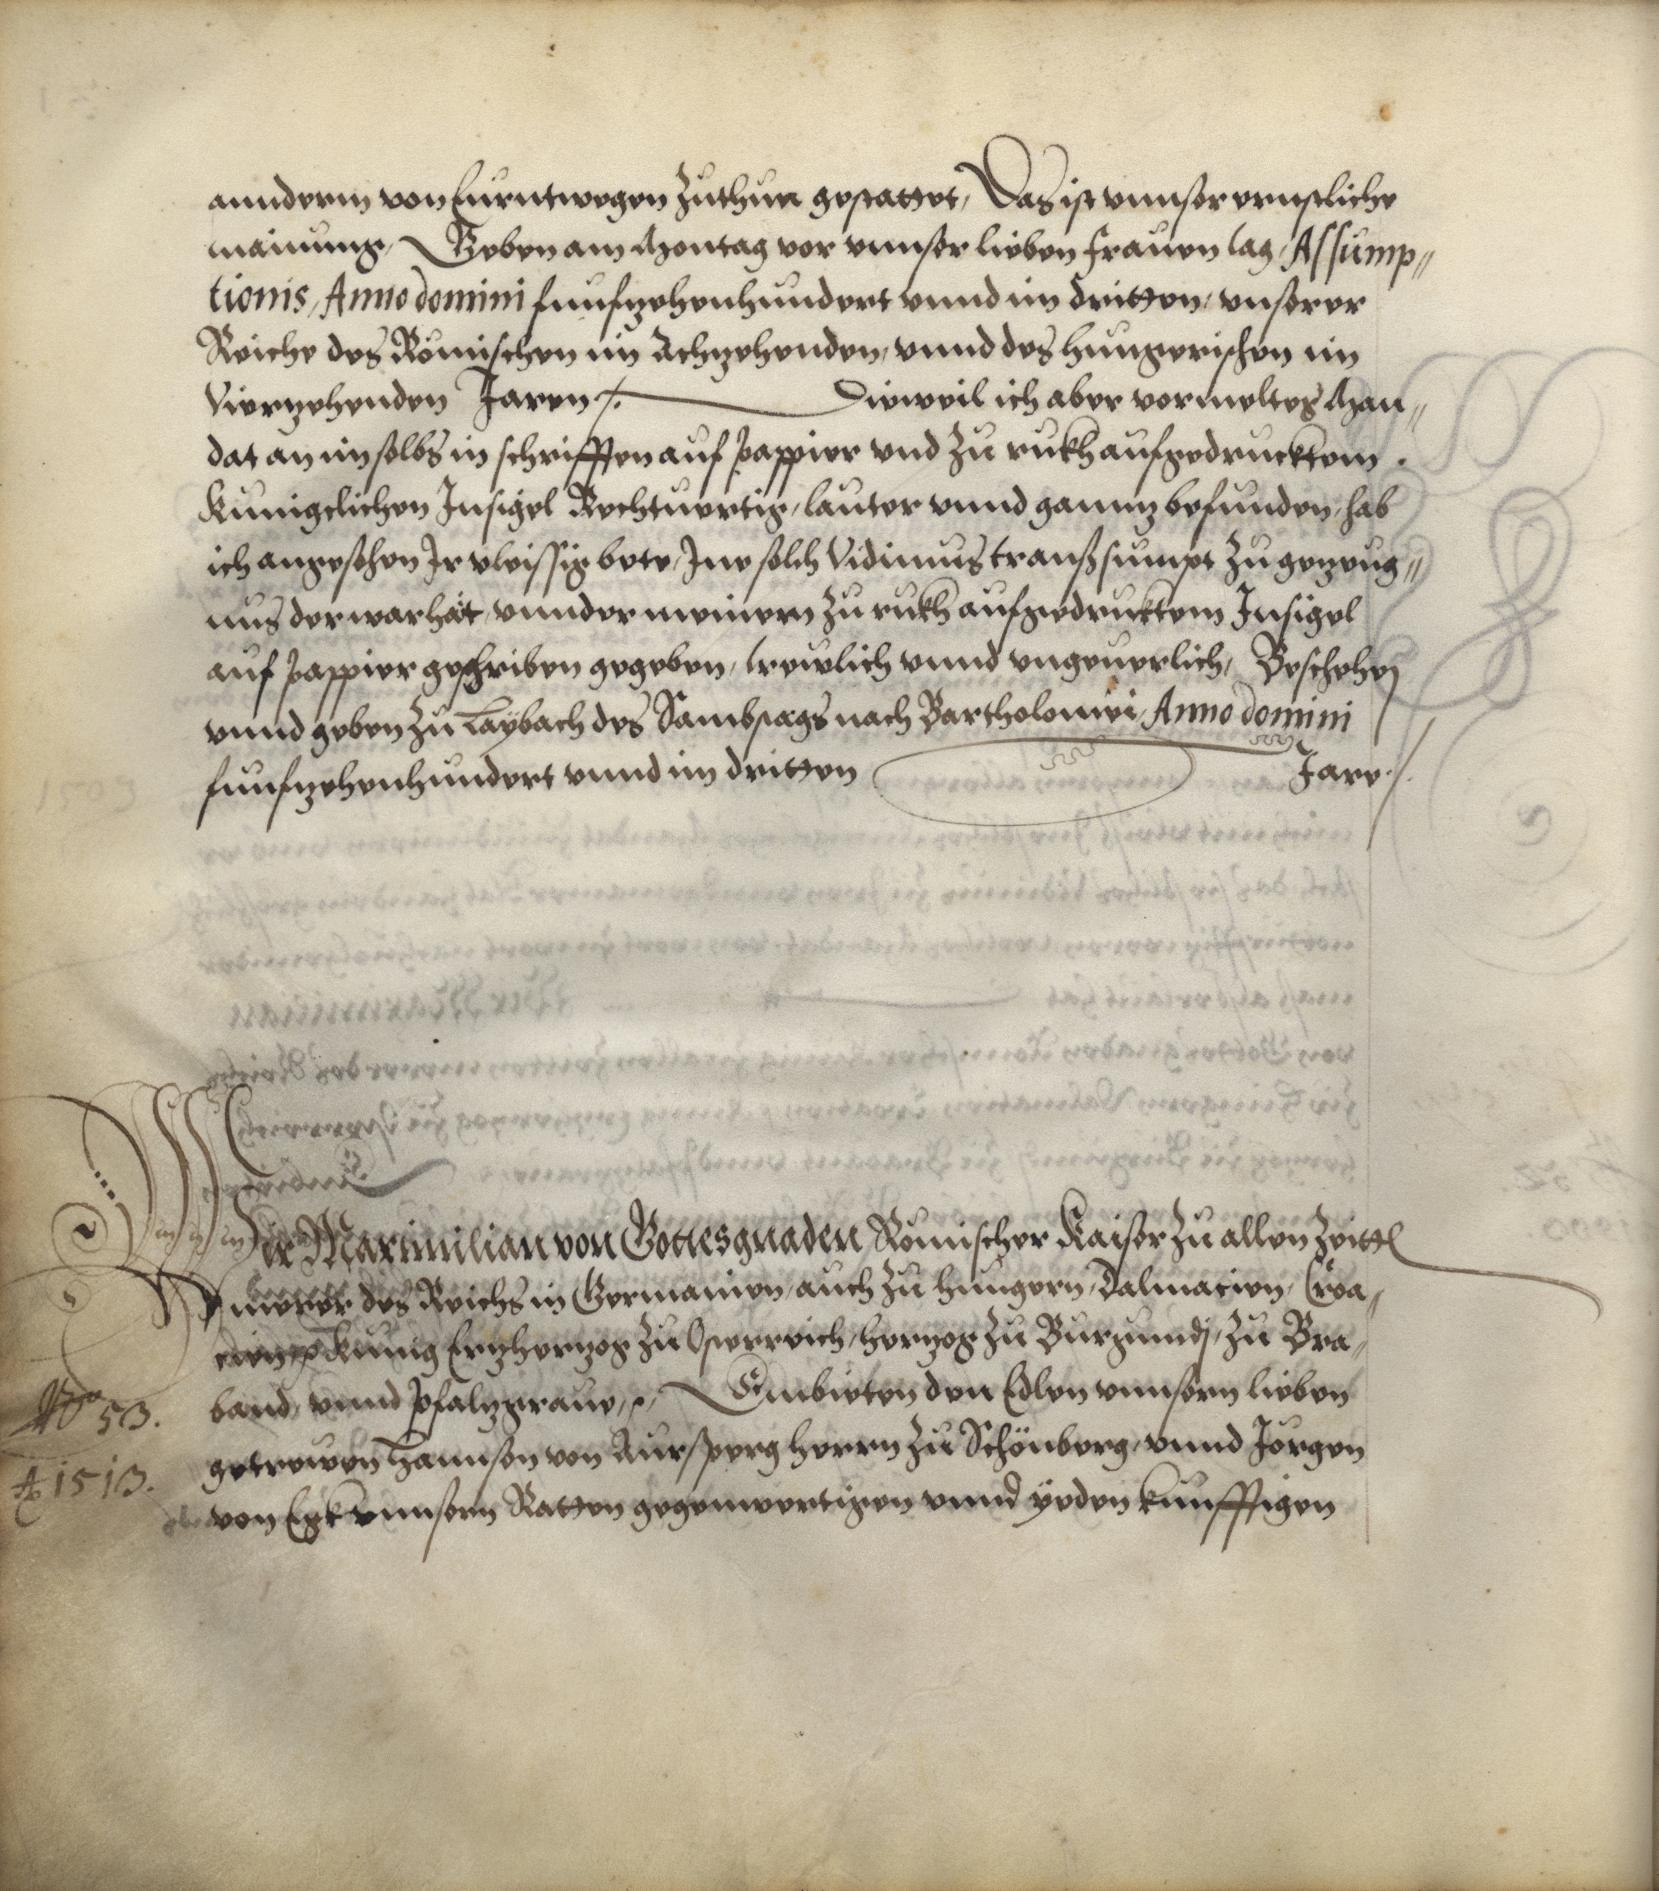 annderm von Eurntwegen zuthun gestattet, Das ist vnnser ernstliche
mainung, Geben am Montag vor vnnser lieben frauen tag, Assump=
tionis, Anno domini funfzehenhundert vnnd im dritten, vnserer
Reiche des Römischen im Achzehenden, vnnd des hungerischen im
Vierzehenden Jaren /. Dieweil ich aber vermeltes Man=
dat an im selbs in schrifften auf pappier vnd zu rukh aufgedrucktem
kunigclichen Insigel Rechtuertig, lauter vnnd gannz befunden, hab
ich angesehen Ir vleissig bete, Ine solch Vidimus transsumpt zu gezeug=
nus der warhait, vnnder meinem zu rukh aufgedruktem Insigel
auf pappier geschriben gegeben, trewlich vnnd vngeuerlich, Beschehen
vnnd geben zu Laybach des Sambstags nach Bartholomei, Anno domini
funfzehenhundert vnnd im dritten Jare /.
Wir Maximilian von Gottes gnaden Römischer Kaiser zu allen Zeitten
merer des Reichs in Germanien, auch zu hungern, Dalmatien, Croa=
cien kunig Erzherzog zu Osterreich, herzog zu Burgundj, zu Bra=
band, vnnd Pfalzgraue, Embieten den Edlen vnnsern lieben
No 53. getrewen Hannsen von Aursperg herrn zu Schönberg, vnnd Jörgen
Ao 1513. von Egk vnnsern Ratten gegenwertigen vnnd yeden kunfftigen